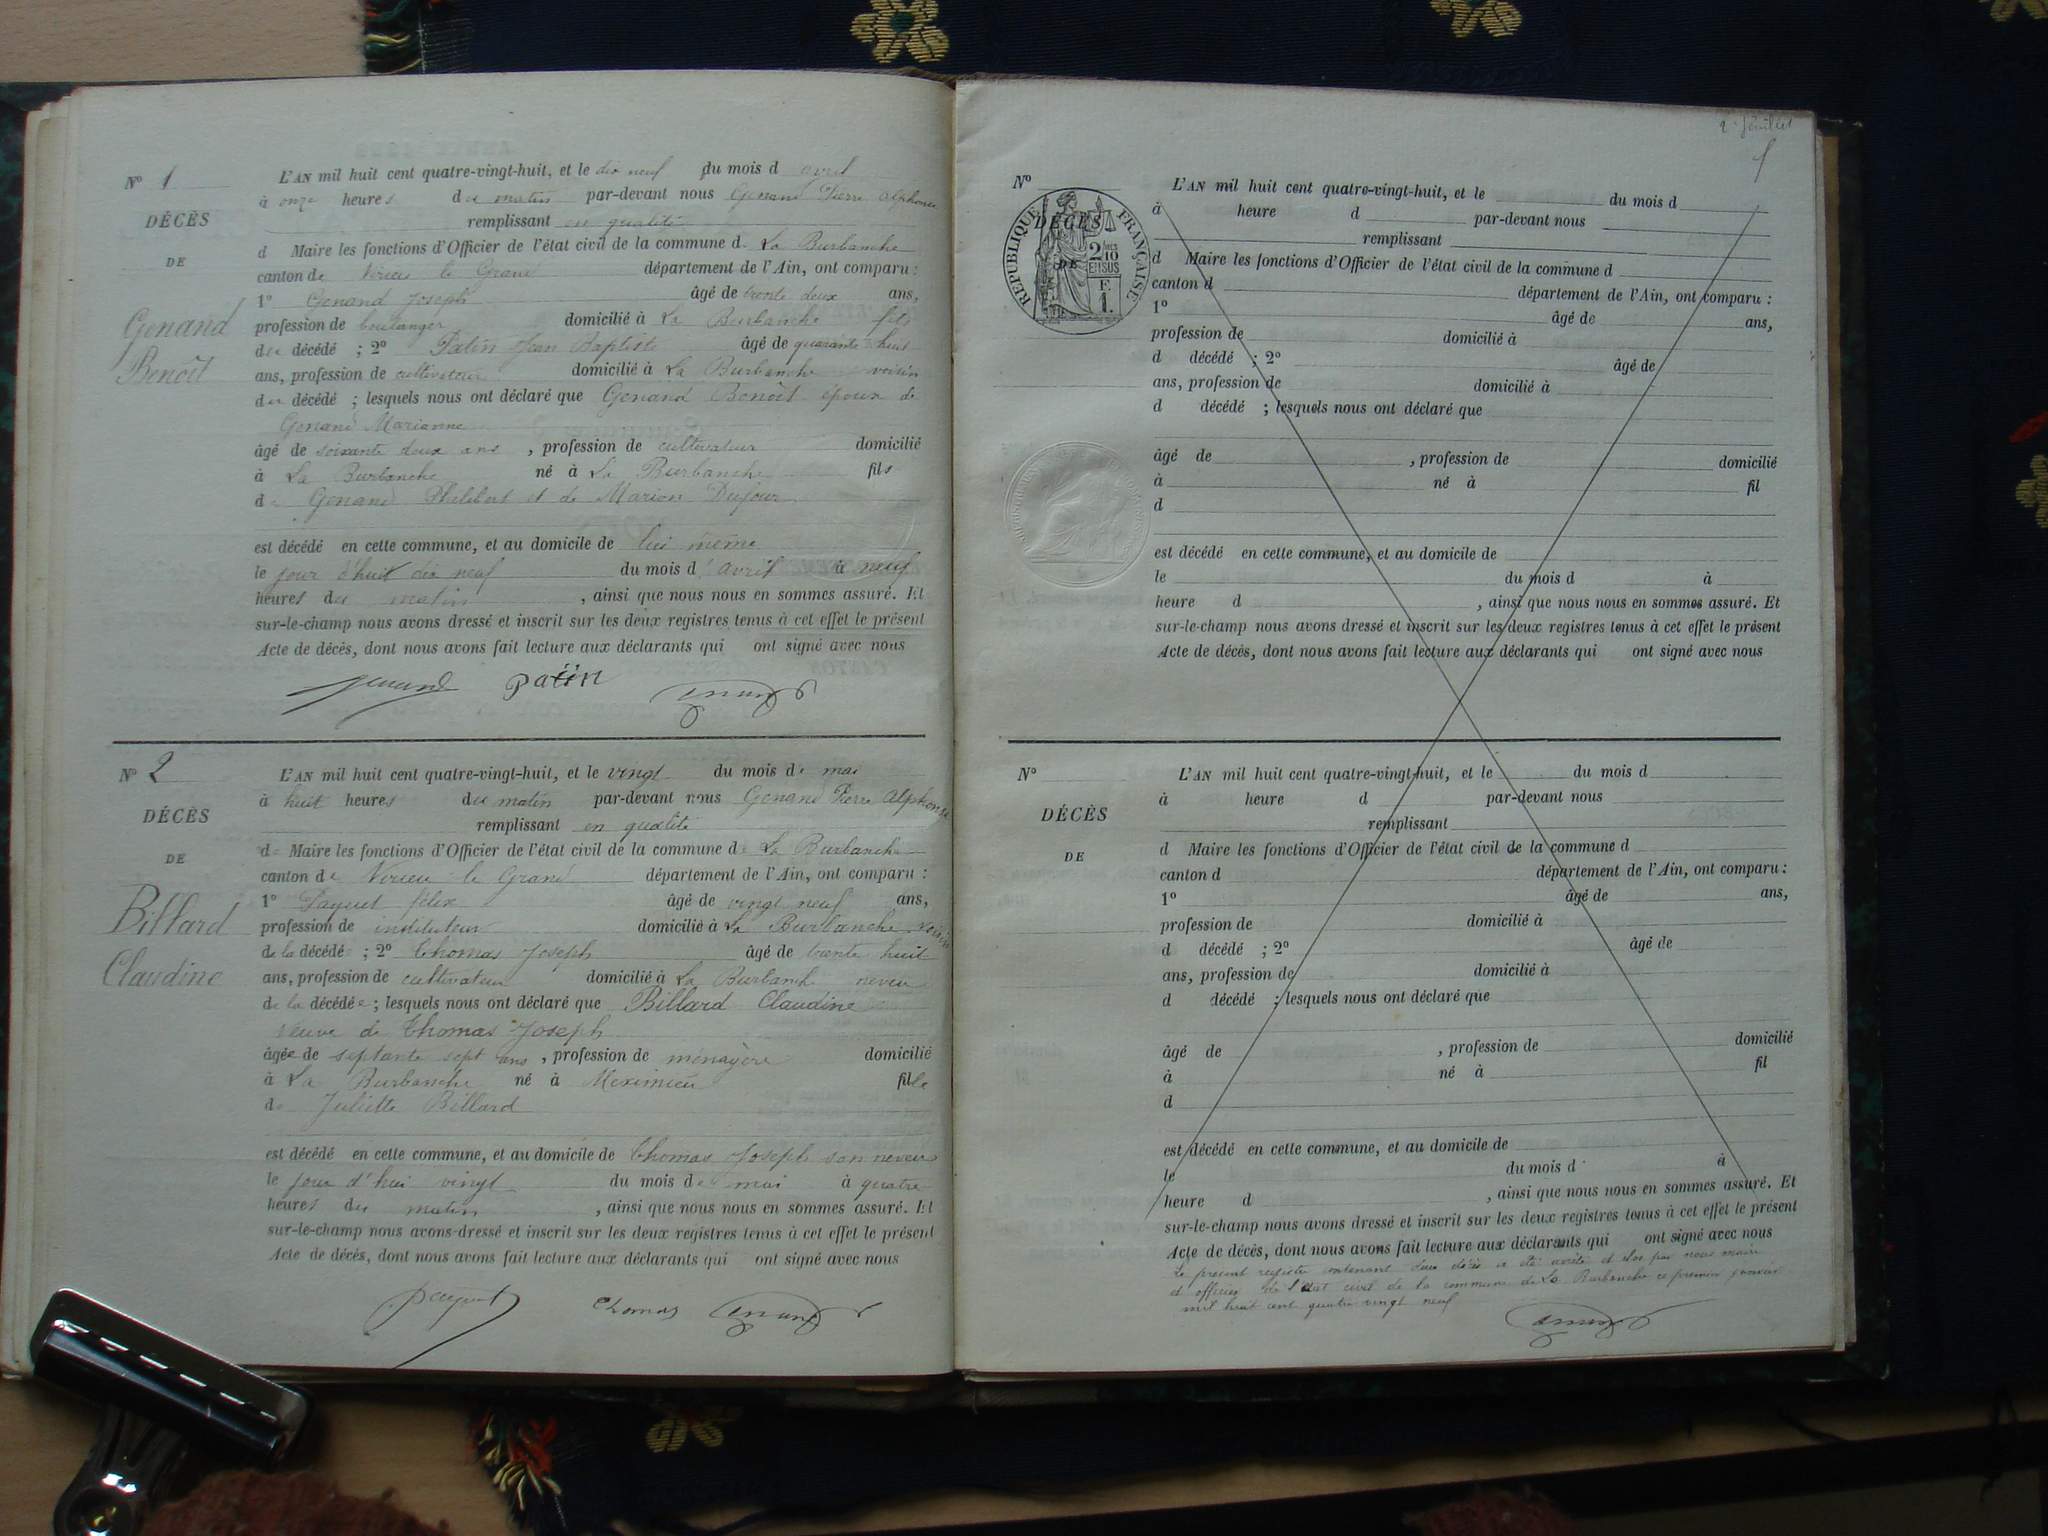 N° 1
DÉCÈS
DE
Genand
Benoît
L'AN mil huit cent quatre-vingt-huit, et le dix neuf du mois d avril
à onze heures du matin par-devant nous Genand Pierre Alphonse
remplissant en qualité
d Maire les fonctions d'Officier de l'état civil de la commune d. La Burbanche
canton de Virieu le Grand département de l'Ain, ont comparu :
1° Genand Joseph âgé de trente deux ans,
profession de boulanger domicilié à La Burbanche fils
du décédé ; 2° Patin Jean Baptiste âgé de quarante huit
ans, profession de cultivateur domicilié à La Burbanche voisin
du décédé ; lesquels nous ont déclaré que Genand Benoît époux de
Genand Marianne
âgé de soixante deux ans , profession de cultivateur domicilié
à La Burbanche né à La Burbanche fils
de Genand Philibert et de Marion Dufour
est décédé en cette commune, et au domicile de lui même
le jour d'huit dix neuf du mois d'avril à neuf
heures du matin , ainsi que nous nous en sommes assuré. Et
sur-le-champ nous avons dressé et inscrit sur les deux registres tenus à cet effet le présent
Acte de décès, dont nous avons fait lecture aux déclarants qui ont signé avec nous
genand Patin Genand
N° 2
DÉCÈS
DE
Billard
Claudine
L'AN mil huit cent quatre-vingt-huit, et le vingt du mois de mai
à huit heures du matin par-devant nous Genand Pierre Alphonse
remplissant en qualité
de Maire les fonctions d'Officier de l'état civil de la commune de La Burbanche
canton de Virieu le Grand département de l'Ain, ont comparu :
1° Paquet félix âgé de vingt neuf ans,
profession de instituteur domicilié à La Burbanche voisin
de la décédée ; 2° Thomas Joseph âgé de trente huit
ans, profession de cultivateur domicilié à La Burbanch neveu
de la décédée ; lesquels nous ont déclaré que Billard Claudine
veuve de Thomas Joseph
âgée de septante sept ans , profession de ménagère domicilié
à La Burbanche né à Meximieu fille
de Juliette Billard
est décédé en cette commune, et au domicile de Thomas Joseph son neveu
le jour d'hui vingt du mois de mai à quatre
heures du matin , ainsi que nous nous en sommes assuré. Et
sur-le-champ nous avons-dressé et inscrit sur les deux registres tenus à cet effet le présent
Acte de décès, dont nous avons fait lecture aux déclarants qui ont signé avec nous
Paquet Thomas Genand
2e feuillet
N°
DÉCÈS
DE
RÉPUBLIQUE FRANÇAISE
2/10 EN SUS
F.
1.
L'AN mil huit cent quatre-vingt-huit, et le du mois d
à heure d par-devant nous
remplissant
d Maire les fonctions d'Officier de l'état civil de la commune d
canton d département de l'Ain, ont comparu :
1° âgé de ans,
profession de domicilié à
d décédé ; 2° âgé de
ans, profession de domicilié à
d décédé ; lesquels nous ont déclaré que
âgé de , profession de domicilié
à né à fil
d
est décédé en cette commune, et au domicile de
le du mois d à
heure d , ainsi que nous nous en sommes assuré. Et
sur-le-champ nous avons dressé et inscrit sur les deux registres tenus à cet effet le présent
Acte de décès, dont nous avons fait lecture aux déclarants qui ont signé avec nous
N°
DÉCÈS
DE
L'AN mil huit cent quatre-vingt-huit, et le du mois d
à heure d par-devant nous
remplissant
d Maire les fonctions d'Officier de l'état civil de la commune d
canton d département de l'Ain, ont comparu :
1° âgé de ans,
profession de domicilié à
d décédé ; 2° âgé de
ans, profession de domicilié à
d décédé ; lesquels nous ont déclaré que
âgé de , profession de domicilié
à né à fil
d
est décédé en cette commune, et au domicile de
le du mois d à
heure d , ainsi que nous nous en sommes assuré. Et
sur-le-champ nous avons dressé et inscrit sur les deux registres tenus à cet effet le présent
Acte de décès, dont nous avons fait lecture aux déclarants qui ont signé avec nous
Le présent registre contenant deux décès a été arrêté et clos par nous maire
et officier de l'état civil de la commune de La Burbanche ce premier janvier
mil huit cent quatre vingt neuf
Genand